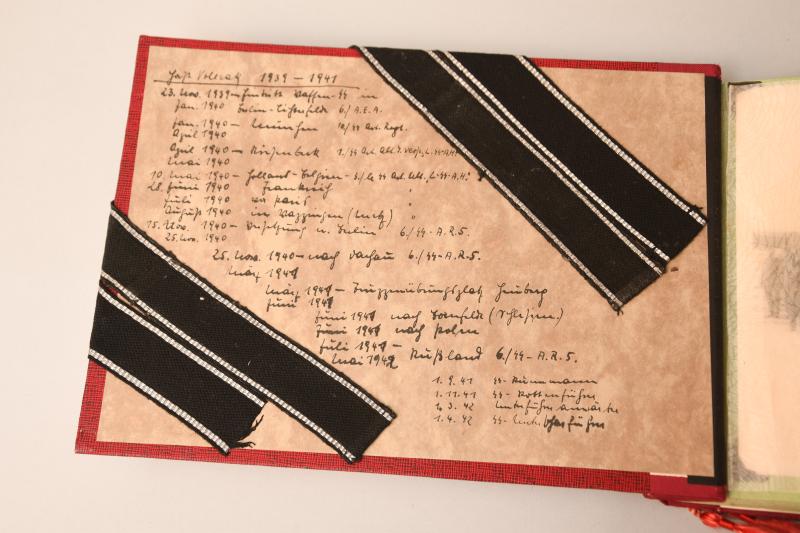 1939 – 1941
23. Nov. 1939 – Eintritt Waffen-SS in
Jan. 1940 Berlin-Lichterfelde 6./A.E.A.
Jan. 1940 – München 10/SS Art. Regt.
April 1940
April 1940 – 1./SS Art. Abt. L-SS-A.H.
Mai 1940
10. Mai 1940 – Holland-Belgien SS Art. Abt. „L-SS-A.H.“
28. Juni 1940 Frankreich "
Juli 1940 vor Paris "
August 1940 in (Metz) "
15. Nov. 1940 – Versetzung n. Berlin 6./SS-A.R.5.
25. Nov. 1940
25. Nov. 1940 – nach Dachau 6./SS-A.R.5.
März 1941
März 1941 – Truppenübungsplatz Heuberg
Juni 1941
Juni 1941 nach (Schlesien)
Juni 1941 nach Polen
Juli 1941 –
Mai 1942 Rußland 6./SS-A.R.5.
1. 9. 41 SS-Sturmmann
1. 11. 41 SS-Rottenführer
1. 3. 42 Unterführeranwärter
1. 4. 42 SS-Unterscharführer